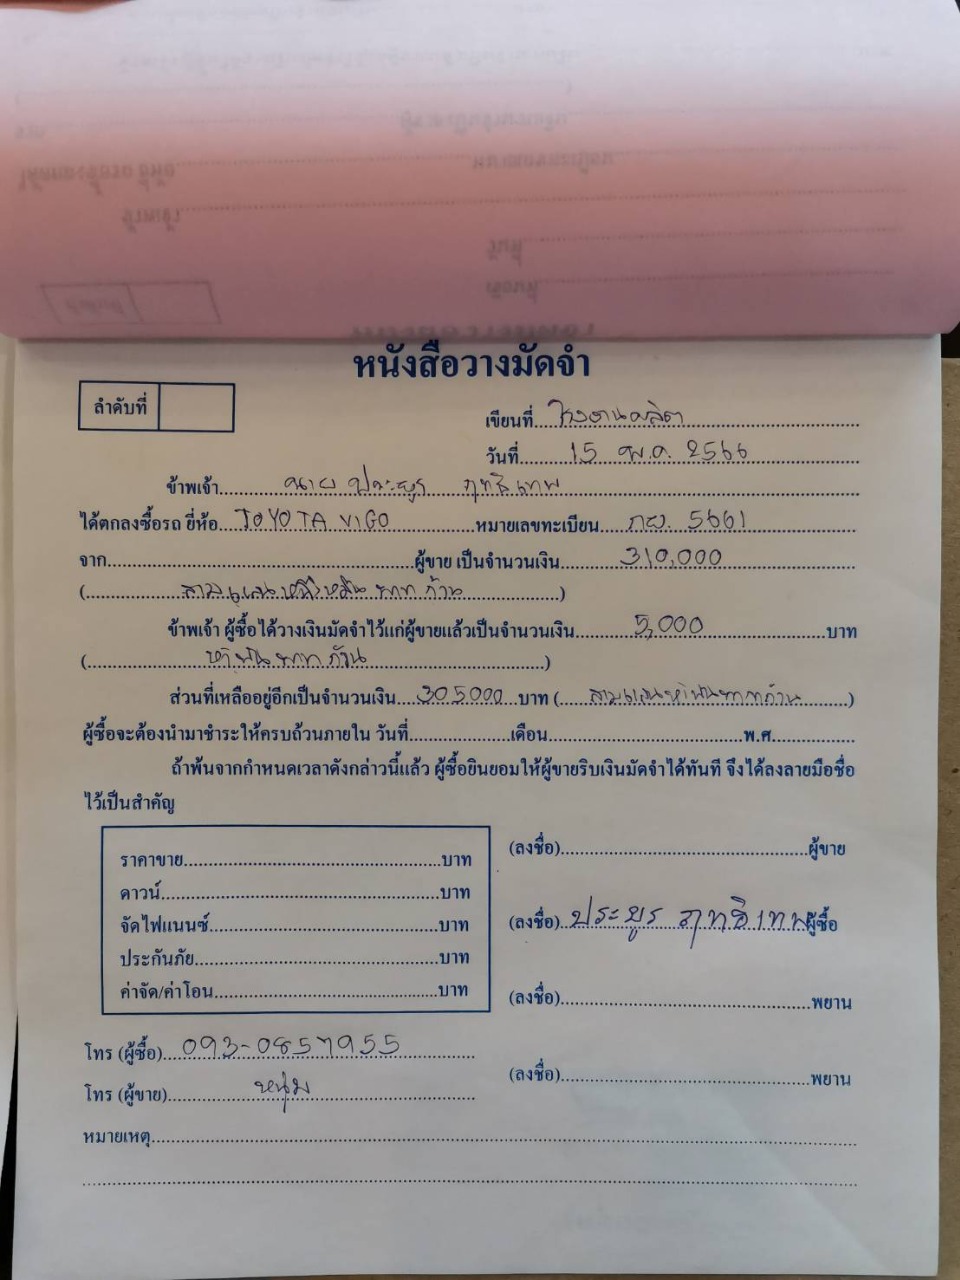 หนังสือวางมัดจำ
ลำดับที่
เขียนที่ โรงงานผลิต
วันที่ 15 พ.ค. 2566
ข้าพเจ้า นาย ประยูร ฤทธิเทพ
ได้ตกลงซื้อรถ ยี่ห้อ TOYOTA VIGO หมายเลขทะเบียน 5661
จาก ผู้ขาย เป็นจำนวนเงิน 310,000
( สามแสนหนึ่งหมื่นบาทถ้วน )
ข้าพเจ้า ผู้ซื้อได้วางเงินมัดจำไว้แก่ผู้ขายแล้วเป็นจำนวนเงิน 5,000 บาท
( ห้าพันบาทถ้วน )
ส่วนที่เหลืออยู่อีกเป็นจำนวนเงิน 305000 บาท ( สามแสนห้าพันบาทถ้วน )
ผู้ซื้อจะต้องนำมาชำระให้ครบถ้วนภายใน วันที่ เดือน พ.ศ.
ถ้าพ้นจากกำหนดเวลาดังกล่าวนี้แล้ว ผู้ซื้อยินยอมให้ผู้ขายริบเงินมัดจำได้ทันที จึงได้ลงลายมือชื่อ
ไว้เป็นสำคัญ
ราคาขาย บาท
ดาวน์ บาท
จัดไฟแนนซ์ บาท
ประกันภัย บาท
ค่าจัด/ค่าโอน บาท
(ลงชื่อ) ผู้ขาย
(ลงชื่อ) ประยูร ฤทธิเทพ ผู้ซื้อ
(ลงชื่อ) พยาน
(ลงชื่อ) พยาน
โทร (ผู้ซื้อ) 093-0857955
โทร (ผู้ขาย) หนุ่ม
หมายเหตุ